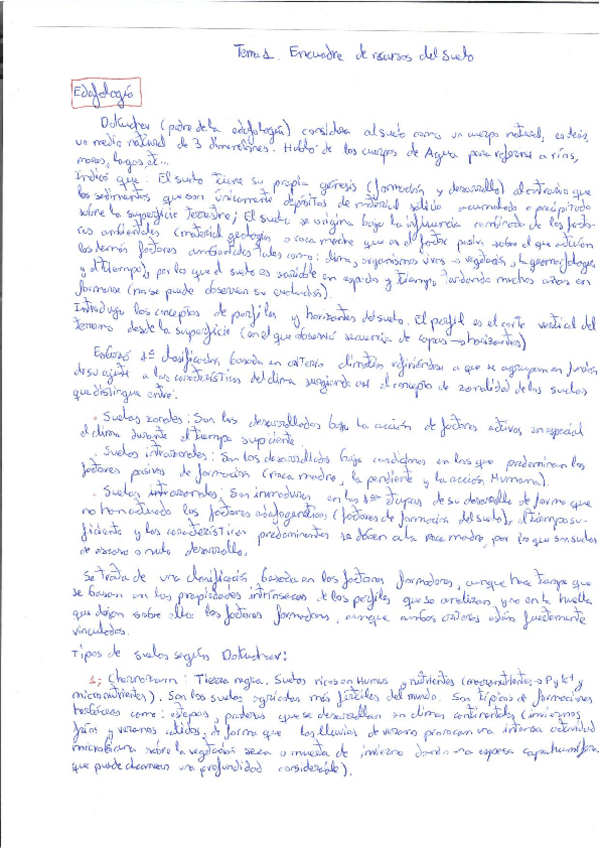 Tema 1. Encuadre de recursos del suelo
Edafología
Dokuchev (padre de la edafología) considera al suelo como un cuerpo natural, es decir,
un medio natural de 3 dimensiones. Habló de los cuerpos de Agua para referirse a ríos,
mares, lagos etc...
Indicó que: El suelo tiene su propia génesis (formación y desarrollo) al contrario que
los sedimentos que son únicamente depósitos de material sólido acumulado o precipitado
sobre la superficie terrestre; El suelo se origina bajo la influencia combinada de los facto-
res ambientales (material geológico o roca madre que es el factor pasivo sobre el que actúan
los demás factores ambientales tales como: clima, organismos vivos → vegetación, la geomorfología
y el tiempo), por lo que el suelo es variable en espacio y tiempo tardando muchos años en
formarse (no se puede observar su evolución).
Introdujo los conceptos de perfiles y horizontes del suelo. El perfil es el corte vertical del
terreno desde la superficie (en el que observó secuencia de capas → horizontes)
Esbozó 1ª clasificación basada en criterio climático refiriéndose a que se agrupan en función
de su ajuste a las características del clima surgiendo así el concepto de zonalidad de los suelos
que distingue entre:
. Suelos zonales: Son los desarrollados bajo la acción de factores activos en especial
el clima durante el tiempo suficiente.
. Suelos intrazonales: Son los desarrollados bajo condiciones en las que predominan los
factores pasivos de formación (roca madre, la pendiente y la acción Humana).
. Suelos intrazonales; Son inmaduros en las 1ªs etapas de su desarrollo de forma que
no han actuado los factores edafogenéticos (factores de formación del suelo), el tiempo su-
ficiente y las características predominantes se deben a la roca madre, por lo que son suelos
de escaso o nulo desarrollo.
Se trata de una clasificación basada en los factores formadores, aunque hace tiempo que
se basan en las propiedades intrínsecas de los perfiles que se analizan, y no en la huella
que dejan sobre ellos los factores formadores, aunque ambos criterios están fuertemente
vinculados.
Tipos de suelos según Dokuchaev:
1; Chernozem: Tierra negra. Suelos ricos en Humus y nutrientes (macronutrientes → P y K⁺ y
micronutrientes). Son los suelos agrícolas más fértiles del mundo. Son típicos de formaciones
herbáceas como: estepas, praderas que se desarrollan en climas continentales (inviernos
fríos y veranos cálidos, de forma que las lluvias de verano provocan una intensa actividad
microbiana sobre la vegetación seca o muerta de invierno dando una espesa capa humífera
que puede alcanzar una profundidad considerable).